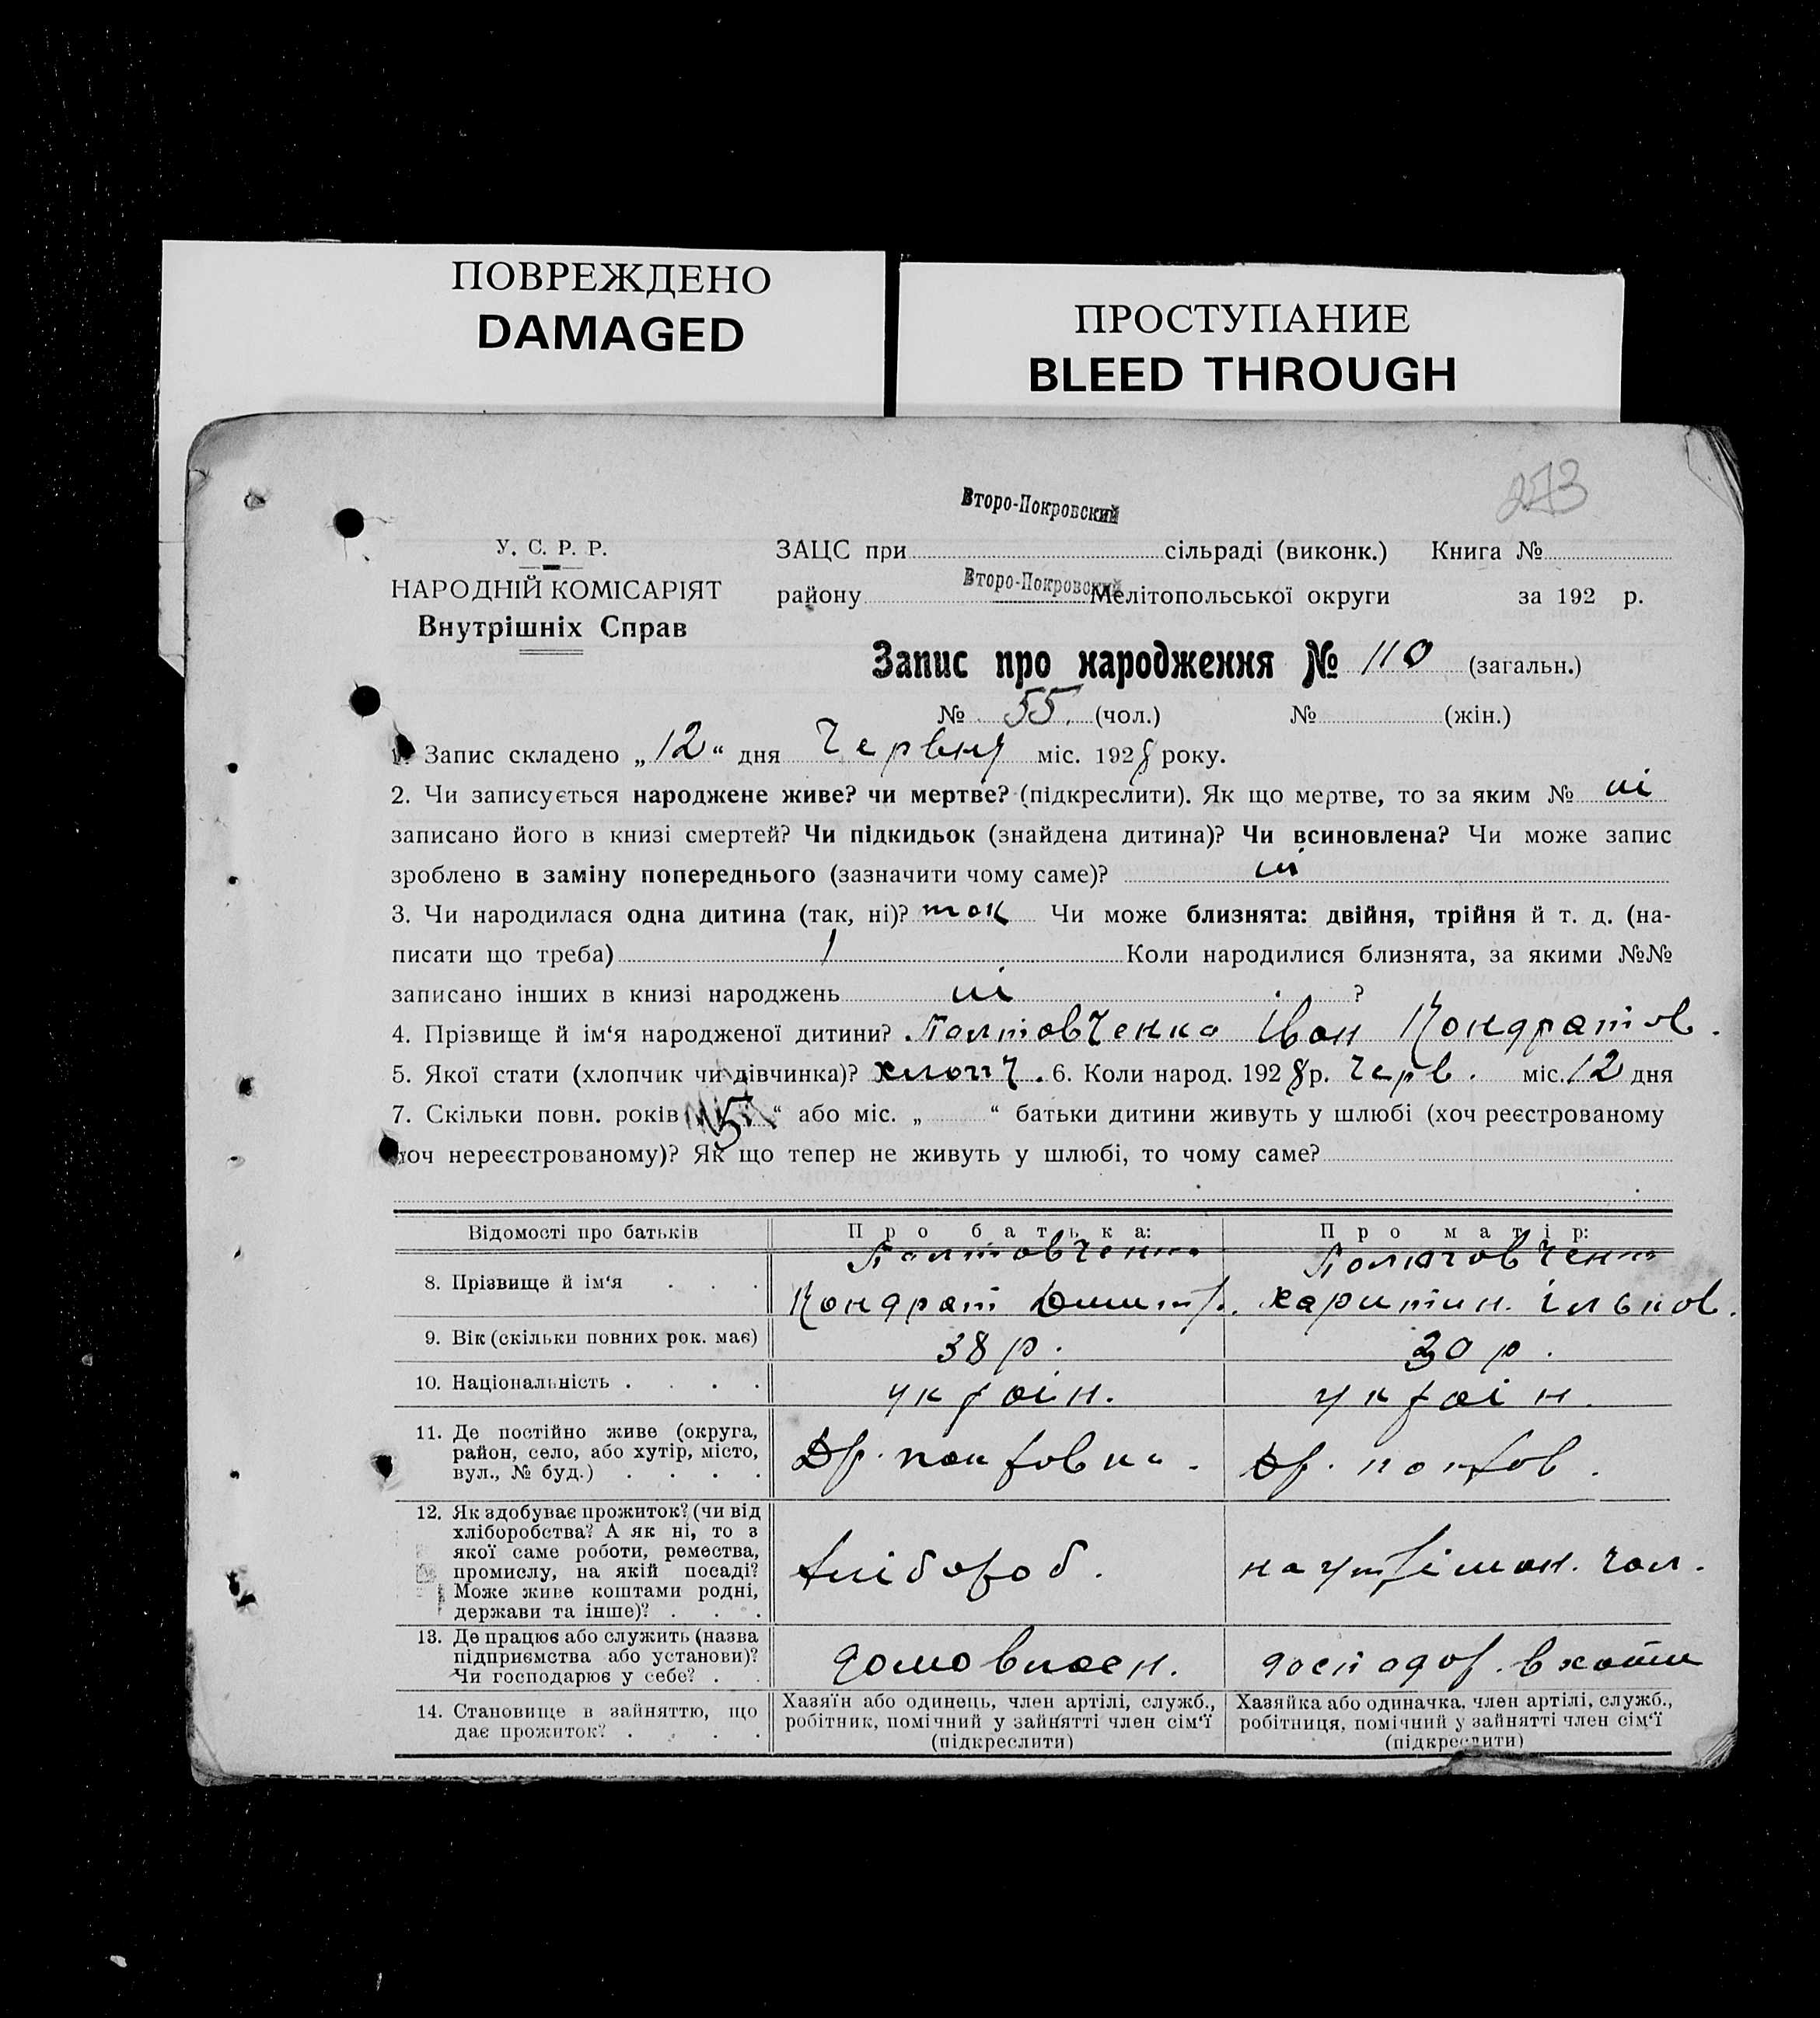 ПОВРЕЖДЕНО
DAMAGED
ПРОСТУПАНИЕ
BLEED THROUGH
273
Второ-Покровский
У. С. Р. Р.
ЗАЦС при сільраді (виконк.) Книга №
НАРОДНІЙ КОМІСАРІЯТ
Второ-Покровский
району Мелітопольської округи за 192 р.
Внутрішніх Справ
Запис про народження № 110 (загальн.)
№ 55. (чол.) № (жін.)
1. Запис складено „12“ дня Червня міс. 1928 року.
2. Чи записується народжене живе? чи мертве? (підкреслити). Як що мертве, то за яким № ні
записано його в книзі смертей? Чи підкидьок (знайдена дитина)? Чи всиновлена? Чи може запис
зроблено в заміну попереднього (зазначити чому саме)? ні
3. Чи народилася одна дитина (так, ні)? так Чи може близнята: двійня, трійня й т. д. (на-
писати що треба) 1 Коли народилися близнята, за якими №№
записано інших в книзі народжень ні ?
4. Прізвище й ім‘я народженої дитини? Полтовченко Іван Кондратов.
5. Якої стати (хлопчик чи дівчинка)? хлопч. 6. Коли народ. 1928 р. Черв. міс. 12 дня
7. Скільки повн. років 5 “ або міс. „ “ батьки дитини живуть у шлюбі (хоч реєстрованому
хоч нереєстрованому)? Як що тепер не живуть у шлюбі, то чому саме?
Відомості про батьків Про батька: Про матір:
8. Прізвище й ім‘я . . . Полтовченко Полтовченко
Кондрат Дмитр. Харитин. Ільков.
9. Вік (скільки повних рок. має) 38 р. 30 р.
10. Національність . . . . україн. україн.
11. Де постійно живе (округа,
район, село, або хутір, місто,
вул., № буд.) . . . . Др. покровка. Др. покров.
12. Як здобуває прожиток? (чи від
хліборобства? А як ні, то з
якої саме роботи, ремества,
промислу, на якій посаді?
Може живе коштами родні,
держави та інше)? . . . хлібороб. на утріман. чол.
13. Де працює або служить (назва
підприємства або установи)?
Чи господарює у себе? . . домовласн. господар. в хати
14. Становище в зайняттю, що
дає прожиток? . . . .
Хазяїн або одинець, член артілі, служб.,
робітник, помічний у зайнятті член сім‘ї
(підкреслити)
Хазяйка або одиначка, член артілі, служб.,
робітниця, помічний у зайнятті член сім‘ї
(підкреслити)